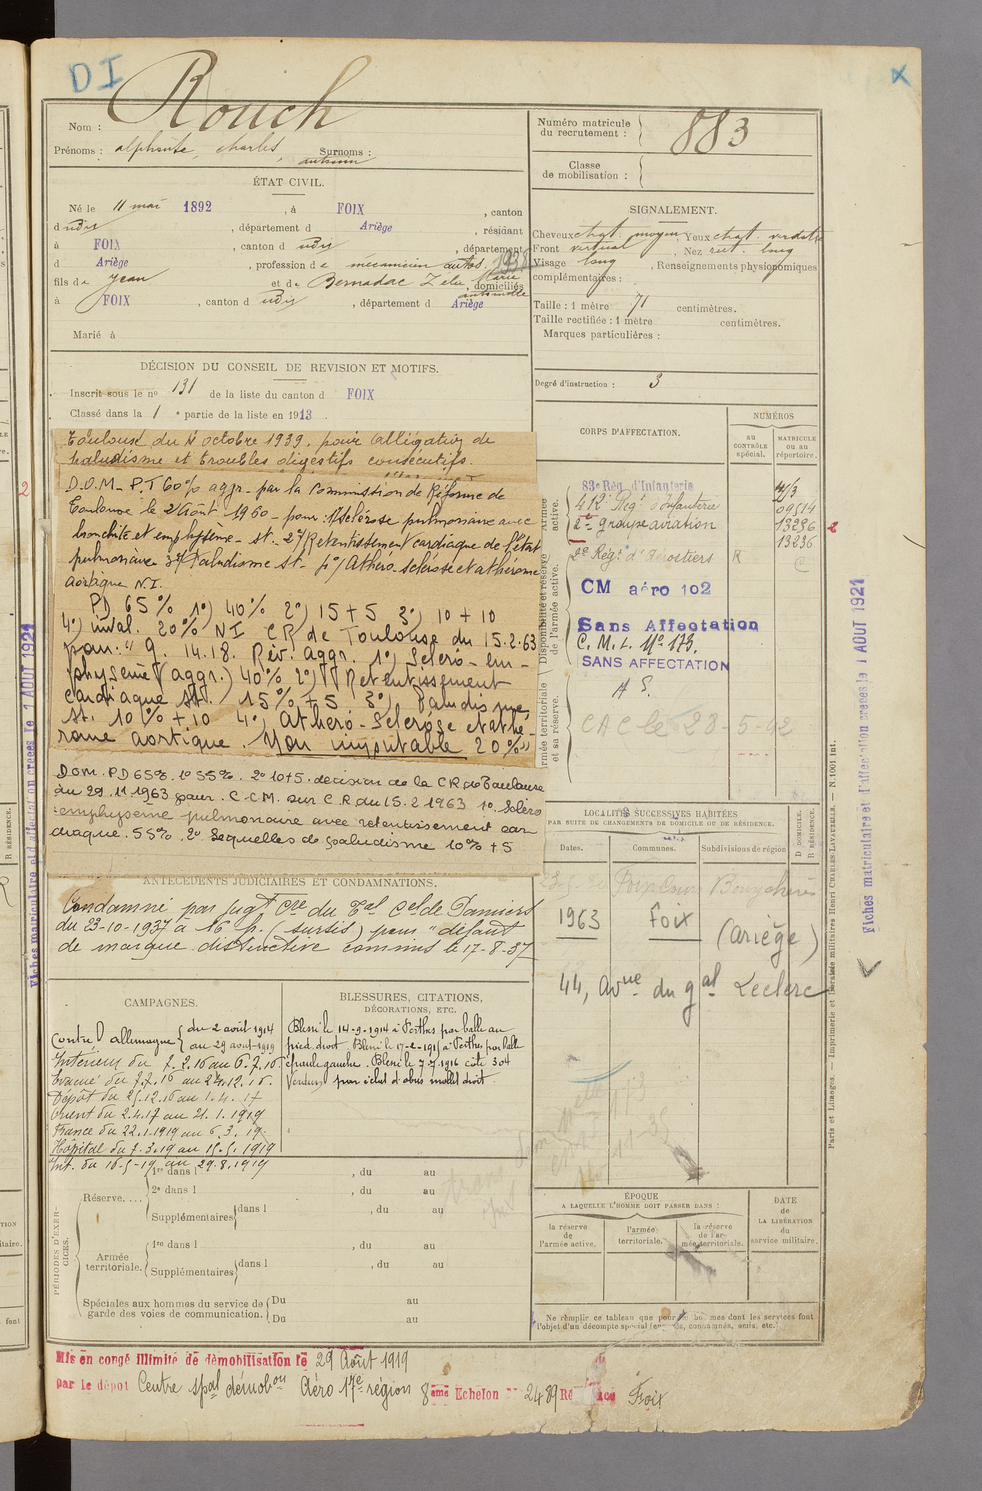 DI
Nom : Rouch
Prénoms : alphonse, charles, Surnoms :
antonin
ÉTAT CIVIL.
Né le 11 mai 1892, à FOIX, canton
d udis, département d Ariège, résidant
à FOIX, canton d udis, département
d Ariège, profession de mécanicien autos. 1938
fils de Jean et de Bernadac Zélie Marie, domiciliés
antoinette
à FOIX, canton d udis, département d Ariège
Marié à
DÉCISION DU CONSEIL DE REVISION ET MOTIFS.
Inscrit sous le no 131 de la liste du canton d FOIX
Classé dans la 1 e partie de la liste en 1913.
Toulouse du 4 octobre 1939. pour allégation de
paludisme et troubles digestifs consécutifs.
D.O.M- P.T 60% aggr- par la Commission de Réforme de
Toulouse le 2 Août 1960- pour: 1° Sclérose pulmonaire avec
bronchite et emphysème- st- 2°/ Retentissement cardiaque de l'état
pulmonaire 3°/ Paludisme st- 4°/ Athéro-sclérose et athérome
aortique N.I.
PD 65% 1°) 40% 2°) 15+5 3°) 10+10
4°) inval. 20% NI CR de Toulouse du 15.2.63
pour: "G. 14.18. Rév. aggr. 1°) Scléro-em-
physème (aggr.) 40% 2°) Retentissement
cardiaque st. 15%+5 3°) Paludisme,
st. 10%+10 4°) Athéro-Sclérose et athé-
rome aortique. Non imputable 20%"
Dom. PD 65%. 1° 55%. 2° 10+5. décision de la CR de Toulouse
du 29.11.1963 pour. C.C.M. sur C.R du 15.2.1963 1°. Scléro
emphysème pulmonaire avec retentissement car
diaque. 55%. 2° Séquelles de paludisme 10% +5
ANTÉCÉDENTS JUDICIAIRES ET CONDAMNATIONS.
Condamné par Jugt Cre du Tal Cel de Pamiers
du 23-10-1937 à 16 f. (sursis) pour "défaut
de marque distinctive commis le 17-8-37
CAMPAGNES.
Contre l'allemagne { du 2 août 1914
au 29 août 1919
Intérieur du 7.2.16 au 6.7.16
Evacué du 7.7.16 au 24.12.16.
Dépôt du 25.12.16 au 1.4.17
Orient du 2.4.17 au 21.1.1919
France du 22.1.1919 au 6.3.19.
Hôpital du 7.3.19 au 15.5.1919
Int. du 16-5-19 au 29.8.1919
BLESSURES, CITATIONS,
DÉCORATIONS, ETC.
Blessé le 14-9-1914 à Perthes par balle au
pied droit. Blessé le 17-2-1915 à Perthes par balle
épaule gauche. Blessé le 7-7-1916 côte 304
Verdun par éclat d'obus mollet droit
PÉRIODES D'EXERCICES.
Réserve. ...
1re dans l , du au
2e dans l , du au
Supplémentaires dans l , du au
Armée
territoriale.
1re dans l , du au
Supplémentaires dans l , du au
Spéciales aux hommes du service de
garde des voies de communication.
Du au
Du au
Mis en congé illimité de démobilisation le 29 Août 1919
par le dépôt Centre spal démobon Aéro 17e région 8ème Echelon No 2489 Résidence Foix
Numéro matricule
du recrutement : 883
Classe
de mobilisation :
SIGNALEMENT.
Cheveux chat. moyen, Yeux chat. verdatre
Front vertical, Nez rect. long
Visage long, Renseignements physionomiques
complémentaires :
Taille : 1 mètre 71 centimètres.
Taille rectifiée : 1 mètre centimètres.
Marques particulières :
Degré d'instruction : 3
CORPS D'AFFECTATION.
NUMÉROS
AU
CONTRÔLE
spécial.
MATRICULE
OU AU
répertoire.
Disponibilité et réserve
de l'armée active.
Armée
active.
83e Rég. d'Infanterie
412 Régt d'Infanterie 09514
2e groupe aviation 13236 2
13236
2e Régt d'Aérostiers R C
CM aéro 102
Sans Affectation
C. M. L. No 173.
SANS AFFECTATION
A S.
Armée territoriale
et sa réserve.
CAC le 23-5-42
LOCALITÉS SUCCESSIVES HABITÉES
PAR SUITE DE CHANGEMENTS DE DOMICILE OU DE RÉSIDENCE.
Dates. Communes. Subdivisions de région
D DOMICILE.
R RÉSIDENCE.
1963 Foix (Ariège)
44, Avnue du Gal Leclerc
ÉPOQUE
A LAQUELLE L'HOMME DOIT PASSER DANS :
la réserve
de
l'armée active.
l'armée
territoriale.
la réserve
de l'ar-
mée territoriale.
DATE
de
LA LIBÉRATION
du
service militaire.
Ne remplir ce tableau que pour les hommes dont les services font
l'objet d'un décompte spécial (engagés, condamnés, exilés, etc.)
Paris et Limoges. — Imprimerie et librairie militaires Henri CHARLES-LAVAUZELLE. — N. 1001 int.
Fiches matriculaire et d'affectation créées le 1 AOUT 1921
Fiches matriculaire et d'affectation créées le 1 AOUT 1921
R RÉSIDENCE.
2